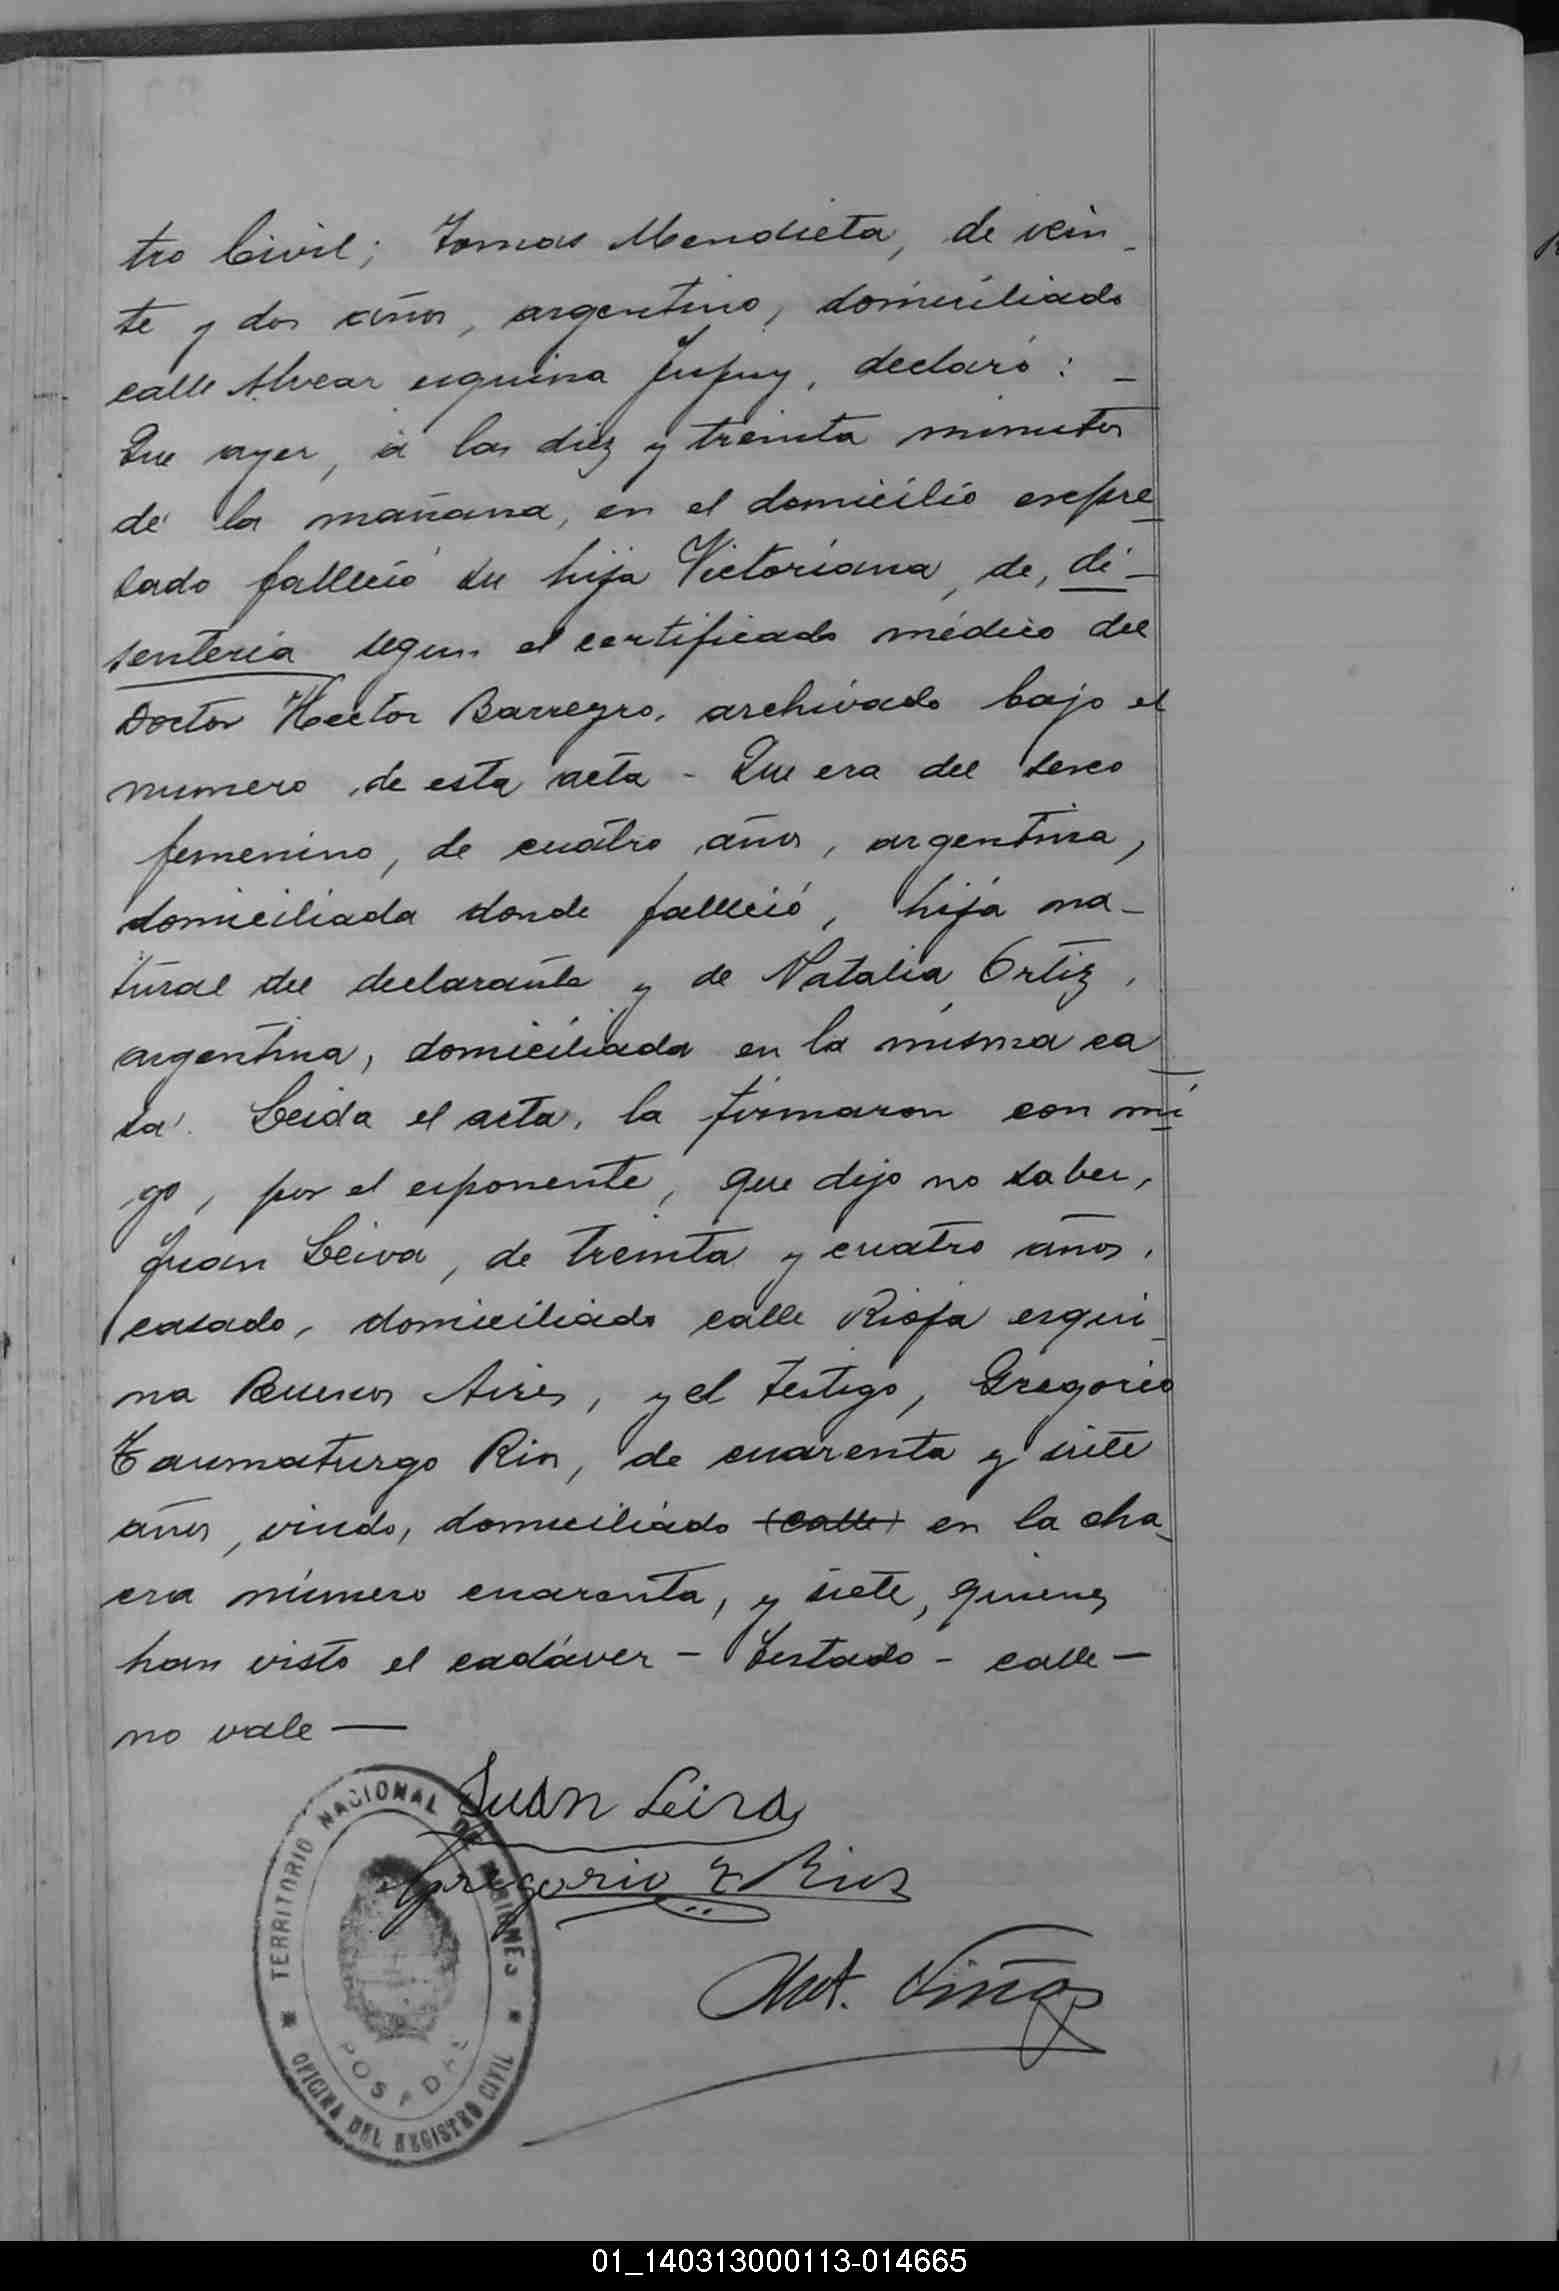 tro Civil; Tomas Mendieta, de vein-
te y dos años, argentino, domiciliado
calle Alvear esquina Jujuy, declaró: -
Que ayer, á las diez y treinta minutos
de la mañana, en el domicilio expre-
sado falleció su hija Victoriana, de, di-
senteria segun el certificado médico del
Doctor Hector Barreyro, archivado bajo el
numero de esta acta - Que era del sexo
femenino, de cuatro años, argentina,
domiciliada donde falleció, hija na-
tural del declarante y de Natalia Ortiz,
argentina, domiciliada en la misma ca-
sa. Leida el acta, la firmaron con mi-
go, por el exponente, que dijo no saber,
Juan Leiva, de treinta y cuatro años,
casado, domiciliado calle Rioja esqui-
na Buenos Aires, y el testigo, Gregorio
Taumaturgo Rios, de cuarenta y siete
años, viudo, domiciliado (calle) en la cha-
cra número cuarenta, y siete, quienes
han visto el cadáver - Testado - calle -
no vale —
Juan Leiva
Gregorio T Rios
Ant. Viñas
TERRITORIO NACIONAL DE MISIONES
POSADAS
OFICINA DEL REGISTRO CIVIL
01_140313000113-014665